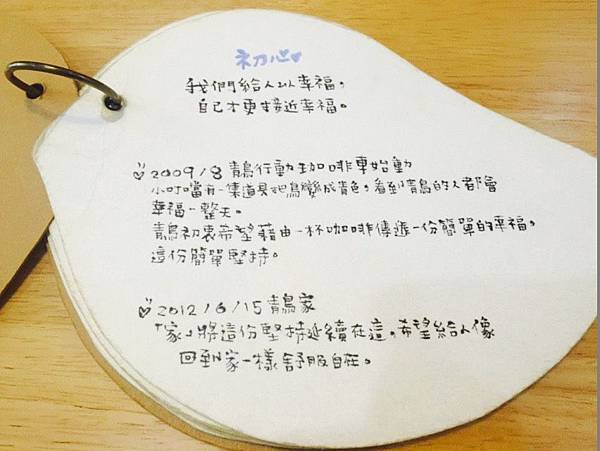 初心
我們給人以幸福,
自己才更接近幸福。
2009/8 青鳥行動咖啡車始動
小叮噹有一集道具把鳥變成青色,看到青鳥的人都會
幸福一整天。
青鳥初衷希望藉由一杯咖啡傳遞一份簡單的幸福,
這份簡單堅持。
2012/6/15 青鳥家
「家」將這份堅持延續在這,希望給人像
回到家一樣舒服自在。